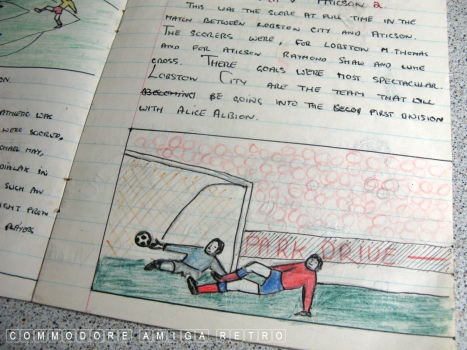 ATICSON 2
THIS WAS THE SCORE AT FULL TIME IN THE
MATCH BETWEEN LOBSTON CITY AND ATICSON.
THE SCORERS WERE, FOR LOBSTON M.THOMAS
AND FOR ATICSON RAYMOND SHAW AND LUKE
CROSS. THERE GOALS WERE MOST SPECTACULAR.
LOBSTON CITY ARE THE TEAM THAT WILL
BE GOING INTO THE FIRST DIVISION
WITH ALICE ALBION.
ATHLETIC WAS
WERE SCORED,
MAY,
IN
SUCH AN
PLAYERS
PARK DRIVE
COMMODORE AMIGA RETRO